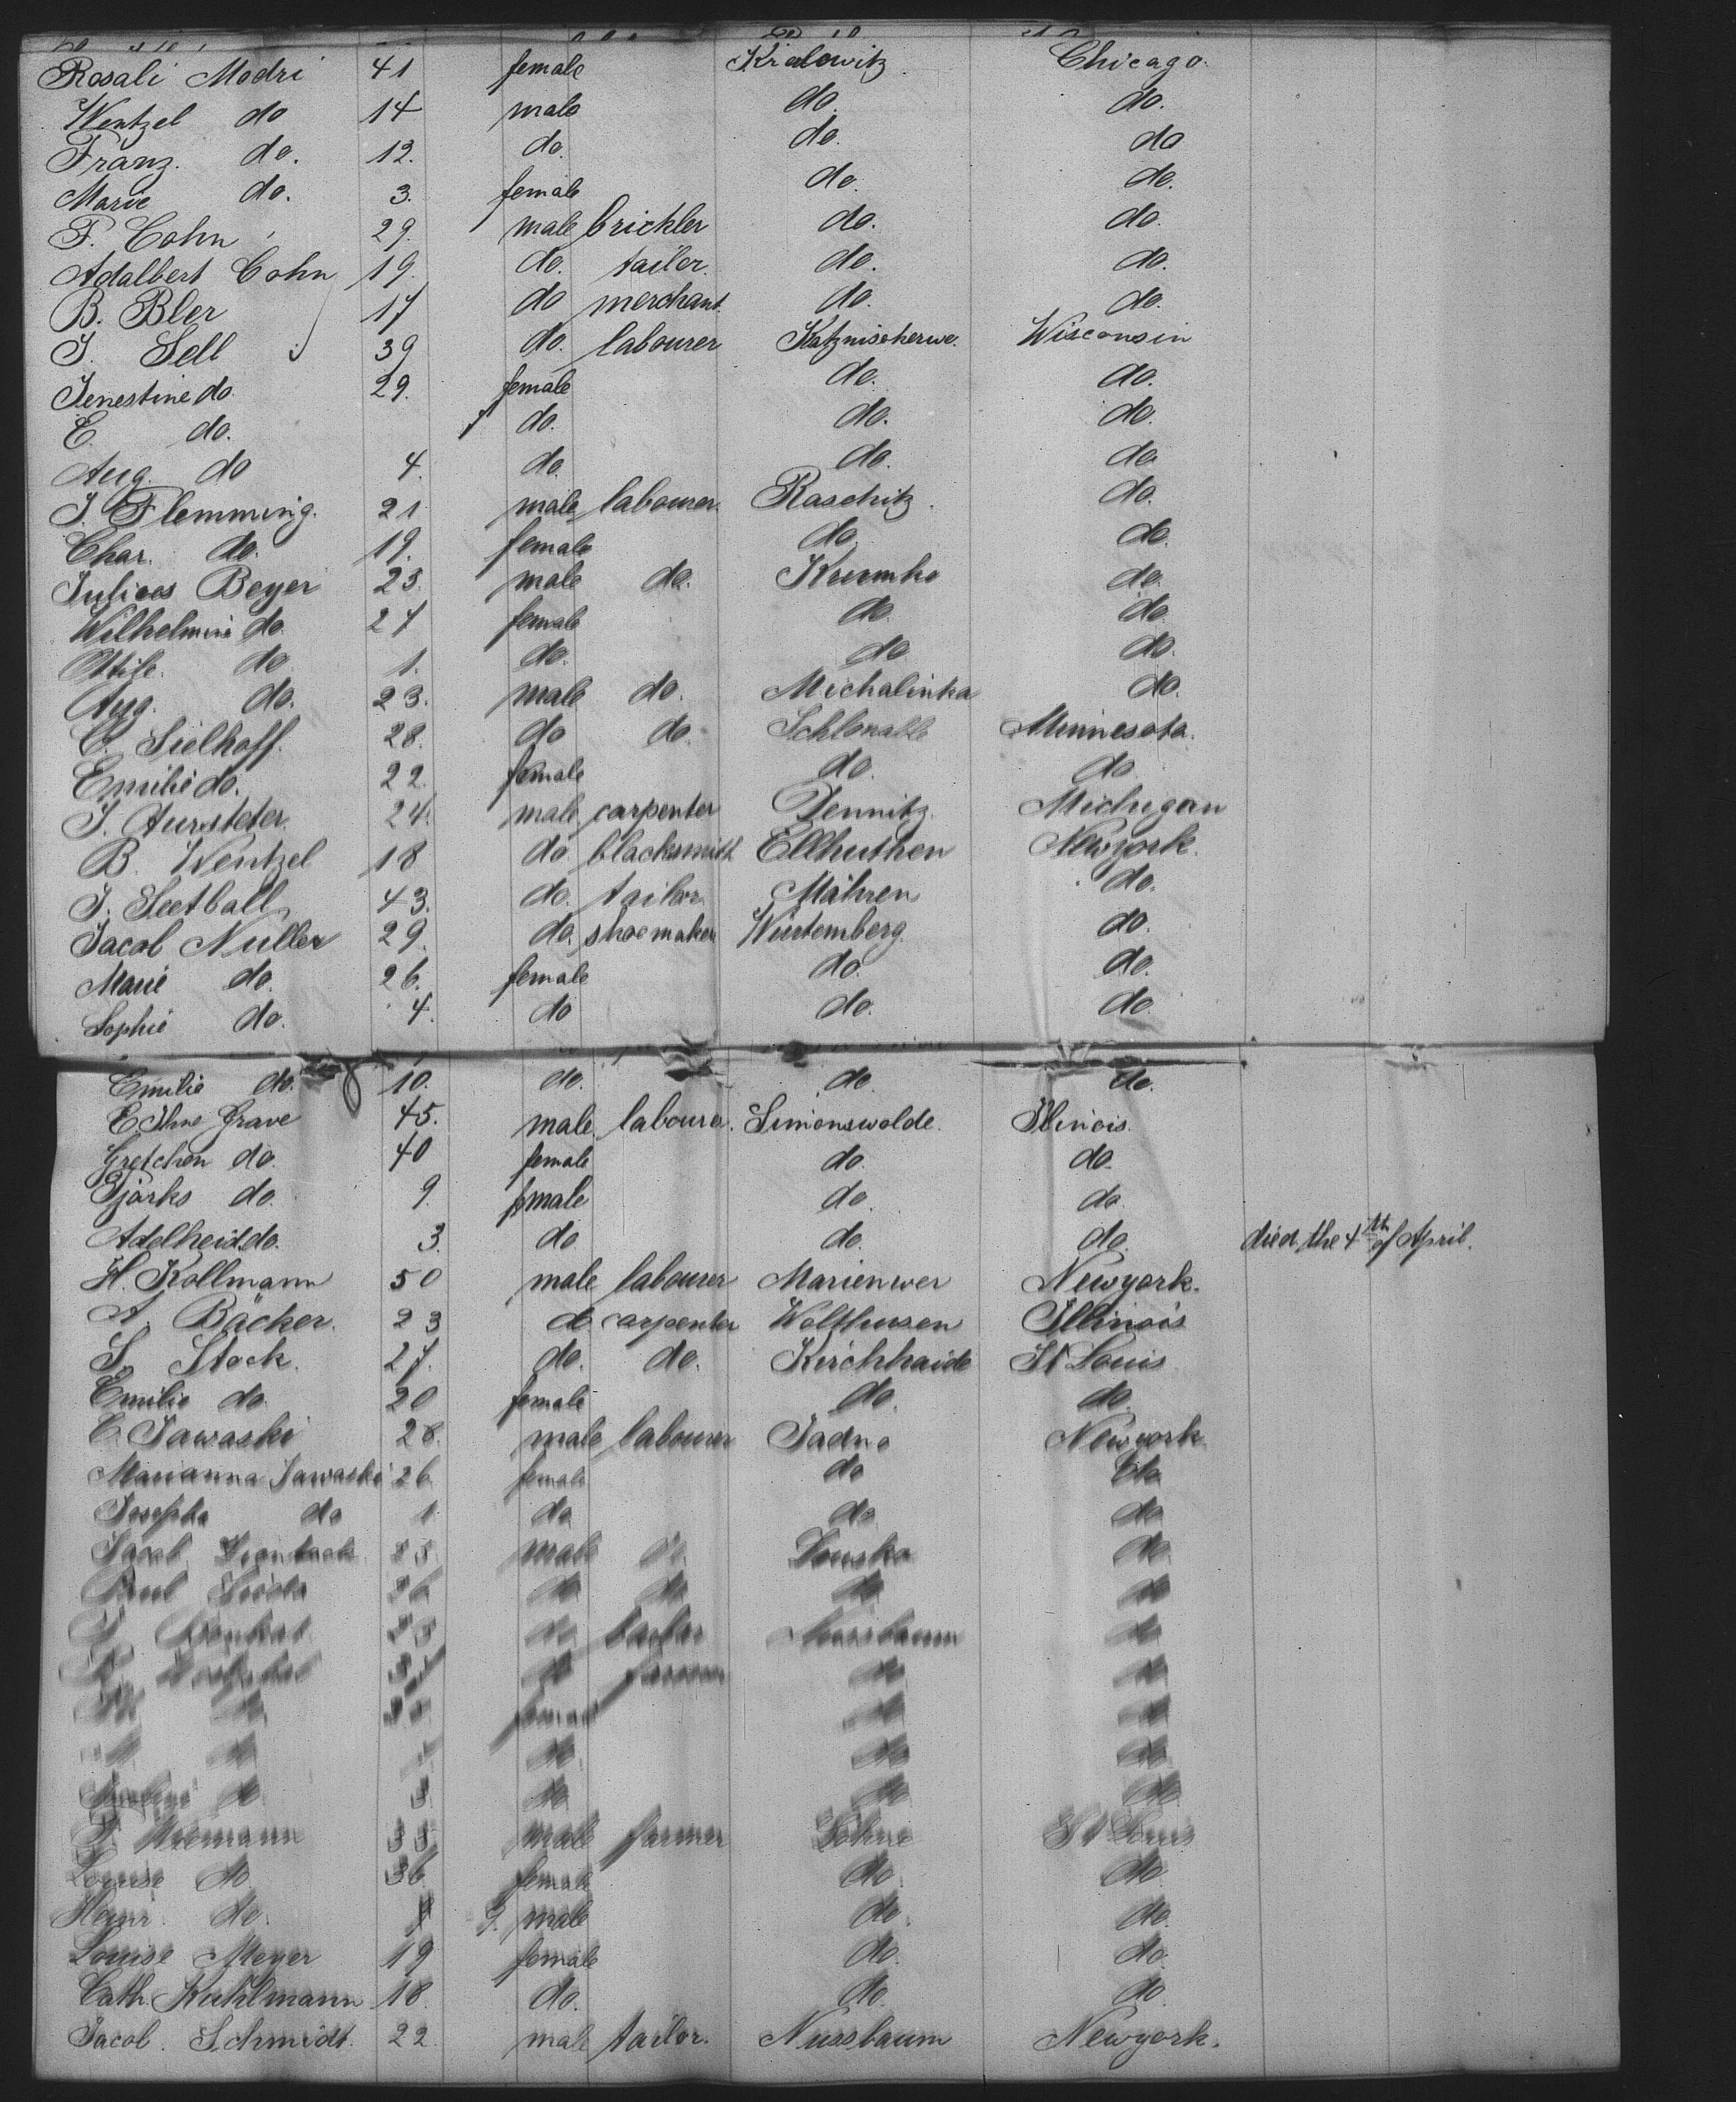 Rosali Modri 41 female Kralowitz Chicago.
Wentzel do 14 male do. do.
Franz. do. 12. do. do. do
Marie do. 3. female do. do.
F. Cohn 29. male brickler do. do.
Adalbert Cohn 19. do. tailor. do. do.
B. Bler 17 do merchant. do. do.
J. Sell 39 do. labourer Katznischerwe. Wisconsin
Jenestine do. 29. female do. do.
E. do. do. do. do.
Aug. do 4. do. do. do
J. Flemming. 21 male labourer. Raschitz. do.
Char. do. 19. female do. do.
Julius Beyer 23. male do. Krumke do.
Wilhelmine do. 27 female do. do.
do 1. do. do do.
Aug. do. 23. male do. Michalinka do.
C. Sielhoff. 28. do do. Minnesota.
Emilie do. 22. female do. do
J. Aursteter. 24. male carpenter Michigan
B. Wentzel 18 do blacksmith Ellhuthen Newyork.
J. Seetball 43. do. tailor Mähren do.
Jacob Nuller 29. do. shoemaker Würtemberg. do.
Marie do. 26. female do. do.
Sophie do. 4. do do. do.
Emilie do. 10. do. do. do.
Grave 45. male labourer. Simonswolde. Ilinois.
Gretchen do. 40 female do. do.
Tjarks do. 9. male do. do.
Adelheid do. 3. do do. do. died the 4th of April.
H. Kollmann 50 male labourer Marienwer Newyork.
A. Bäcker. 23 do carpenter Wolthusen Illinois
S. Stock. 27. do. do. Kirchhaide St Louis
Emilie do. 20 female do. do.
C. Jawaski 28. male labourer Jadno Newyork.
Marianna Jawaski 26 female do do
Josepha do 1 do do do
Jacob male do. do
Paul do do do do
do tailor Nussbaum do
do farmer do do
do female do do
do do do do
do 3 do do do
male farmer Löhne St Louis
Louise do 36 female do. do
Heinr. do. 9. male do. do.
Louise Meyer 19 female do. do.
Cath. Kuhlmann 18. do. do. do
Jacob. Schmidt. 22. male tailor. Nussbaum Newyork.